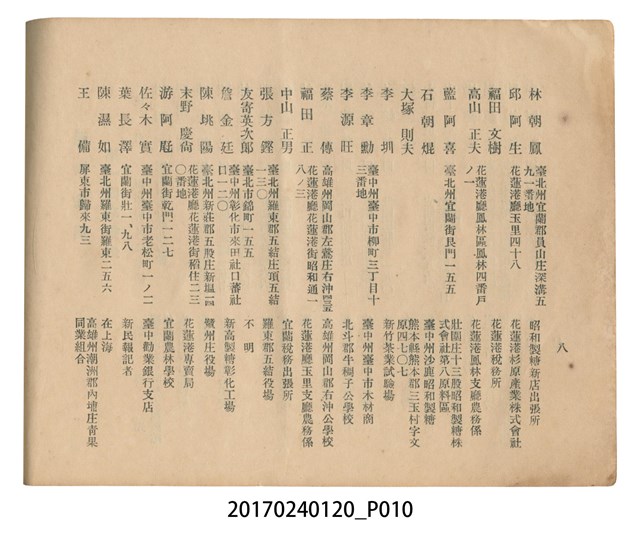 八
林朝鳳 臺北州宜蘭郡員山庄深溝五九一番地 昭和製糖新店出張所
邱阿生 花蓮港廳玉里四十八 花蓮港杉原產業株式會社
福田文樹 花蓮港稅務所
高山正夫 花蓮港廳鳳林區鳳林四番戶ノ一 花蓮港鳳林支廳農務係
藍阿喜 臺北州宜蘭街艮門一五五 壯圍庄十三股昭和製糖株式會社第八原料區
石朝焜 臺中州沙鹿昭和製糖
大塚則夫 熊本縣熊本郡三玉村字文原四七〇七
李圳 新竹茶業試驗場
李章勳 臺中州臺中市柳町三丁目十三番地 臺中州臺中市木材商
李源旺 北斗郡牛稠子公學校
蔡傳 高雄州岡山郡左鷲庄右沖 高雄州岡山郡右沖公學校
福田正 花蓮港廳花蓮港街昭和通一八ノ三 花蓮港廳玉里支廳農務係
中山正男 宜蘭稅務出張所
張方鏗 臺北州羅東郡五結庄頂五結一三〇 羅東郡五結役場
友寄英次郎 臺北市錦町一五五 不明
詹金廷 臺中州彰化市來田社口蕃社口一二〇 新高製糖彰化工場
陳姚陽 臺北州新莊郡五股庄新塭一四 鷺州庄役場
末野慶尙 花蓮港廳花蓮港街稻住二三〇番地 花蓮港專賣局
游阿尫 宜蘭街乾門一二七 宜蘭農林學校
佐々木實 臺中州臺中市老松町一ノ二 臺中勸業銀行支店
葉長澤 宜蘭街壯一、九八 新民報記者
陳濕如 臺北州羅東街羅東二五六 在上海
王備 屏東市歸來九三 高雄州潮洲郡內埔庄青果同業組合
20170240120_P010